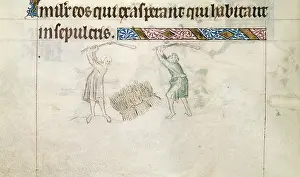 mille eos qui exasperant qui habitant
in sepulcris.